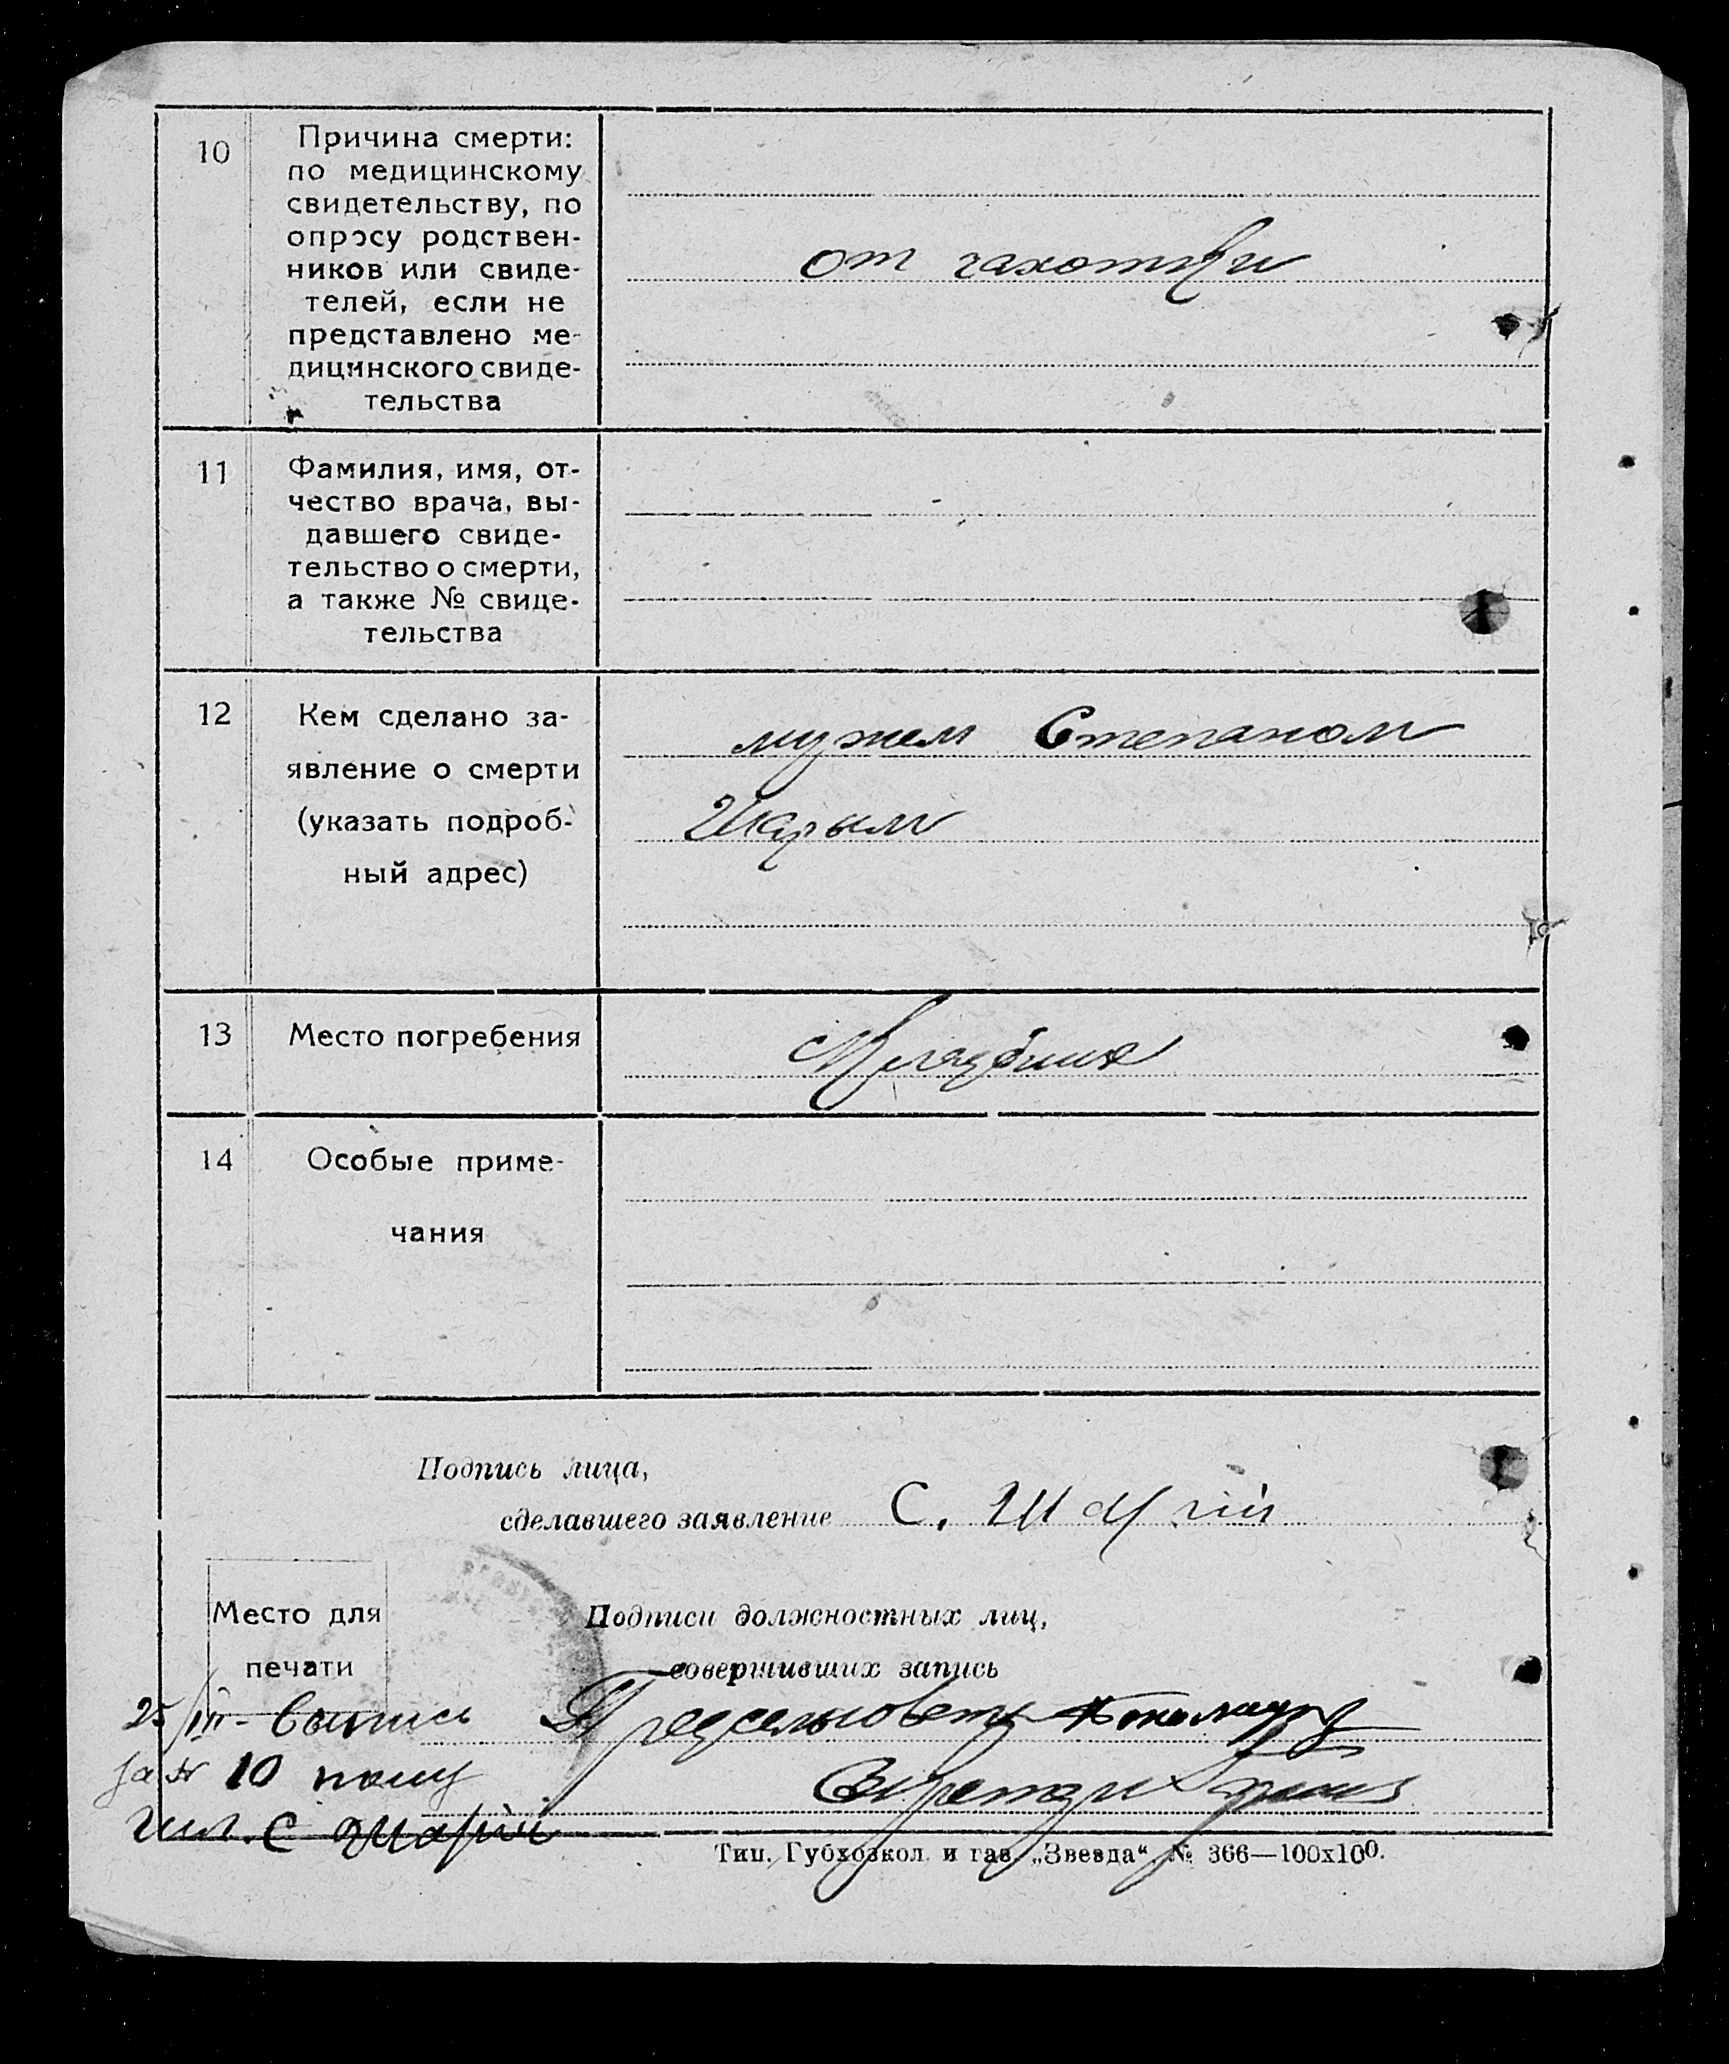 10
Причина смерти:
по медицинскому
свидетельству, по
опросу родствен-
ников или свиде-
телей, если не
представлено ме-
дицинского свиде-
тельства
от чахотки
11
Фамилия, имя, от-
чество врача, вы-
давшего свиде-
тельство о смерти,
а также № свиде-
тельства
12
Кем сделано за-
явление о смерти
(указать подроб-
ный адрес)
мужем Степаном
Шкарым
13
Место погребения
Кладбище
14
Особые приме-
чания
Подпись лица,
сделавшего заявление С.
Место для
печати
Подписи должностных лиц,
совершивших запись
25/III - Выпись Предсельсовета
за № 10
Секретарь
Тип. Губхозкол. и газ. „Звезда“ № 366—100х100.